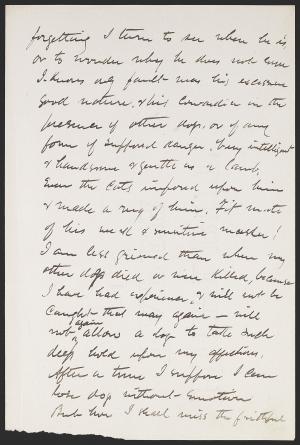 forgetting I turn to see where he is
or to wonder why he does not come
I know only fault was his excessive
good nature, & his cowardice in the
presence of other dogs, or of any
form of supposed danger. Very intelligent
& handsome & gentle as a lamb,
Even the cats imposed upon him
& made a rug of him. Fit mate
of his weak & sensitive master!
I am less grieved than when my
other dogs died or were killed, because
I have had experience, & will not be
caught that way again — will
not again allow a dog to take such
deep hold upon my affections.
After a time I suppose I can
lose dogs without emotion
But how I shall miss the faithful